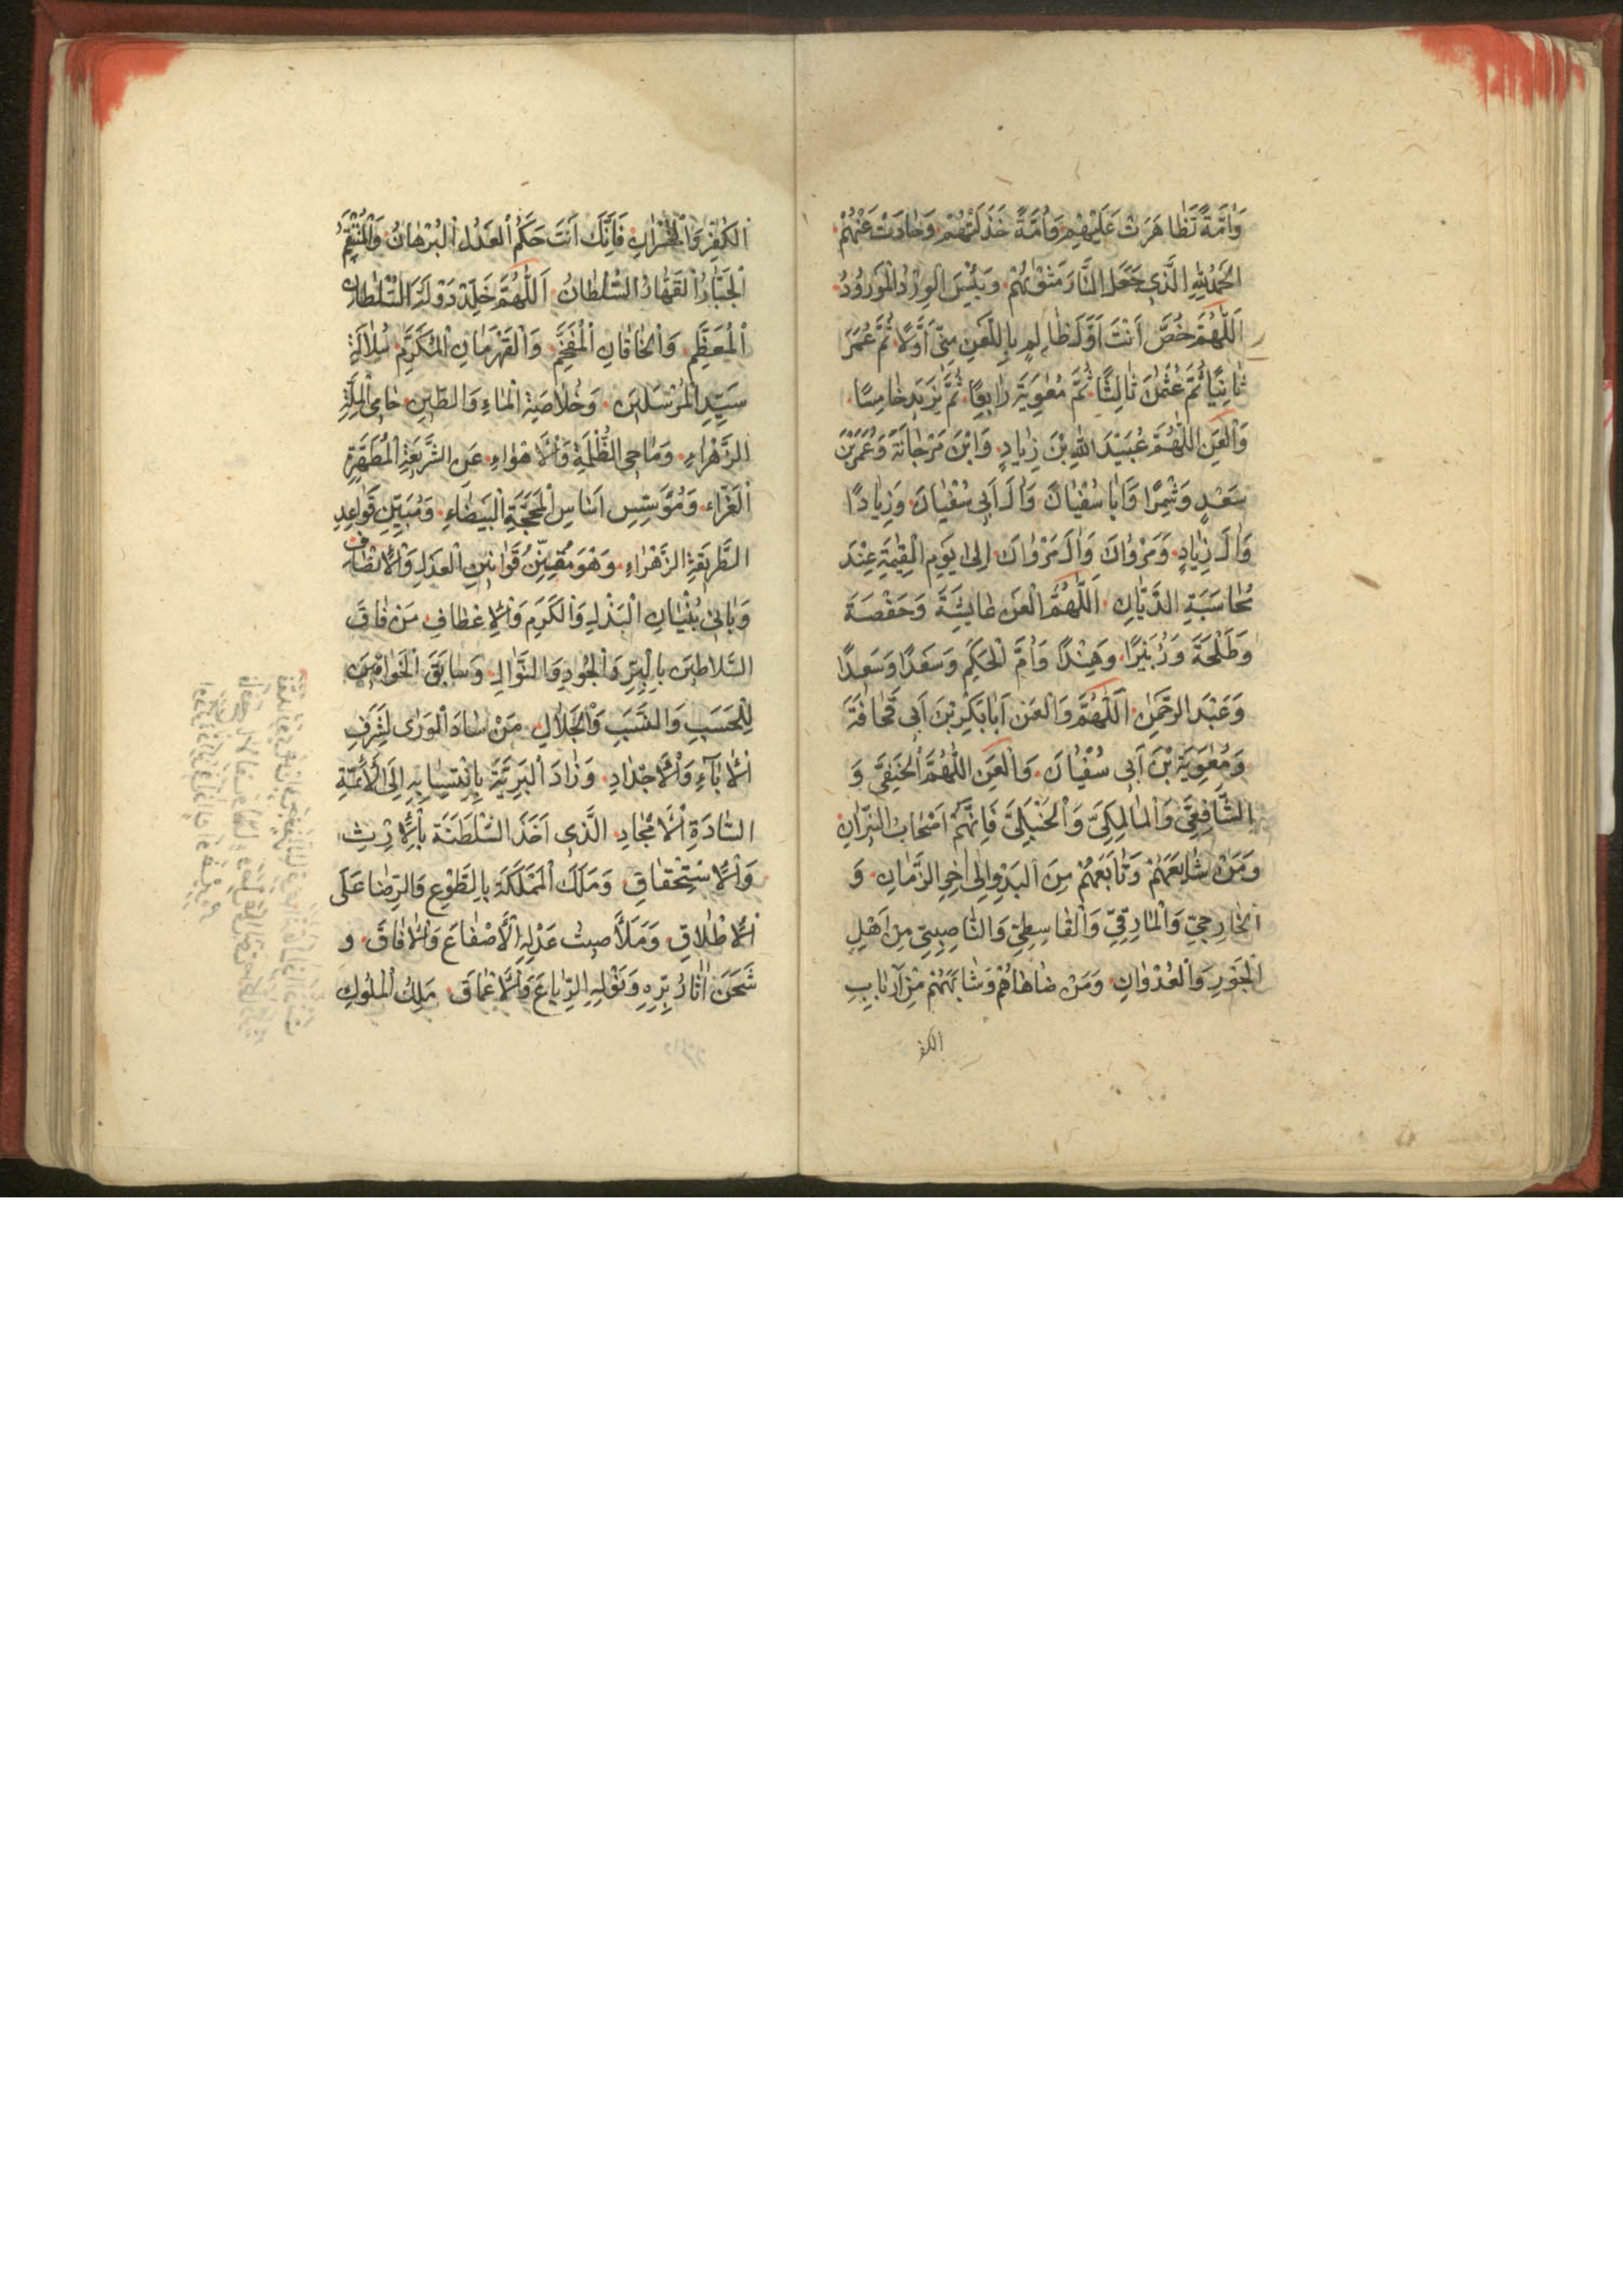 وَاُمَّةً تَظَاهَرَتْ عَلَيْهِمْ وَاُمَّةً خَذَلَتْهُمْ وَحَادَتْ عَنْهُمْ
اَلْحَمْدُ لِلّٰهِ الَّذِي جَعَلَ النَّارَ مَثْوٰيهُمْ وَبِئْسَ الْوِرْدُ الْمَوْرُودُ
اَللّٰهُمَّ خُصَّ اَنْتَ اَوَّلَ ظَالِمٍ بِاللَّعْنِ مِنِّي اَوَّلًا ثُمَّ عُمَرَ
ثَانِيًا ثُمَّ عُثْمٰنَ ثَالِثًا ثُمَّ مُعٰوِيَةَ رَابِعًا ثُمَّ يَزِيدَ خَامِسًا
وَالْعَنِ اللّٰهُمَّ عُبَيْدَ اللّٰهِ بْنَ زِيَادٍ وَابْنَ مَرْجَانَةَ وَعُمَرَ بْنَ
سَعْدٍ وَشِمْرًا وَاَبَا سُفْيَانَ وَاٰلَ اَبِي سُفْيَانَ وَزِيَادًا
وَاٰلَ زِيَادٍ وَمَرْوَانَ وَاٰلَ مَرْوَانَ اِلٰى يَوْمِ الْقِيٰمَةِ عِنْدَ
مُحَاسَبَةِ الدَّيَّانِ اَللّٰهُمَّ الْعَنْ عَايِشَةَ وَحَفْصَةَ
وَطَلْحَةَ وَزُبَيْرًا وَهِنْدًا وَاُمَّ الْحَكَمِ وَسَعْدًا وَسَعِيدًا
وَعَبْدَ الرَّحْمٰنِ اَللّٰهُمَّ وَالْعَنْ اَبَابَكْرِ بْنَ اَبِي قُحَافَةَ
وَمُعٰوِيَةَ بْنَ اَبِي سُفْيَانَ وَالْعَنِ اللّٰهُمَّ الْحَنَفِيَّ وَ
الشَّافِعِيَّ وَالْمَالِكِيَّ وَالْحَنْبَلِيَّ فَاِنَّهُمْ اَصْحَابُ النِّيرَانِ
وَمَنْ شَايَعَهُمْ وَتَابَعَهُمْ مِنَ الْبَدْوِ اِلٰى اٰخِرِ الزَّمَانِ وَ
الْخَارِجِيِّ وَالْمَارِقِيِّ وَالْقَاسِطِيِّ وَالنَّاصِبِيِّ مِنْ اَهْلِ
الْجَوْرِ وَالْعُدْوَانِ وَمَنْ ضَاهَاهُمْ وَشَابَهَهُمْ مِنْ اَرْبَابِ
الكفر
الْكُفْرِ وَالْخُسْرَانِ فَاِنَّكَ اَنْتَ حَكَمُ الْعَدْلُ الْبُرْهَانُ وَالْمُنْتَقِمُ
الْجَبَّارُ الْقَهَّارُ السُّلْطَانُ اَللّٰهُمَّ خَلِّدْ دَوْلَةَ السُّلْطَانِ
الْمُعَظَّمِ وَالْخَاقَانِ الْمُفَخَّمِ وَالْقَهْرَمَانِ الْمُكَرَّمِ سُلَالَةِ
سَيِّدِ الْمُرْسَلِينَ وَخُلَاصَةِ الْمَاءِ وَالطِّينِ حَامِي الْمِلَّةِ
الزَّهْرَاءِ وَمَاحِي الظُّلْمَةِ وَالْاَهْوَاءِ عَنِ الشَّرِيعَةِ الْمُطَهَّرَةِ
الْغَرَّاءِ وَمُؤَسِّسِ اَسَاسِ الْمَحَجَّةِ الْبَيْضَاءِ وَمُبَيِّنِ قَوَاعِدِ
الطَّرِيقَةِ الزَّهْرَاءِ وَهُوَ مُقَنِّنُ قَوَانِينِ الْعَدْلِ وَالْاِنْصَافِ
وَبَانِي بُنْيَانِ الْبَذْلِ وَالْكَرَمِ وَالْاِعْطَافِ مَنْ فَاقَ
السَّلَاطِينَ بِالْبِرِّ وَالْجُودِ وَالنَّوَالِ وَسَابَقَ الْخَوَاقِينَ
لِلْحَسَبِ وَالنَّسَبِ وَالْجَلَالِ مَنْ سَادَ الْوَرٰى لِشَرَفِ
الْاٰبَاءِ وَالْاَجْدَادِ وَزَادَ الْبَرِيَّةَ بِانْتِسَابِهِ اِلَى الْاَئِمَّةِ
السَّادَةِ الْاَمْجَادِ الَّذِي اَخَذَ السَّلْطَنَةَ بِالْاِرْثِ
وَالْاِسْتِحْقَاقِ وَمَلَكَ الْمَمْلَكَةَ بِالطَّوْعِ وَالرِّضَا عَلَى
الْاِطْلَاقِ وَمَلَأَ صِيتُ عَدْلِهِ الْاَصْقَاعَ وَالْاٰفَاقَ وَ
شَحَنَ اٰثَارُ بِرِّهِ الرِّبَاعَ وَالْاَعْمَاقَ مَلِكُ الْمُلُوكِ